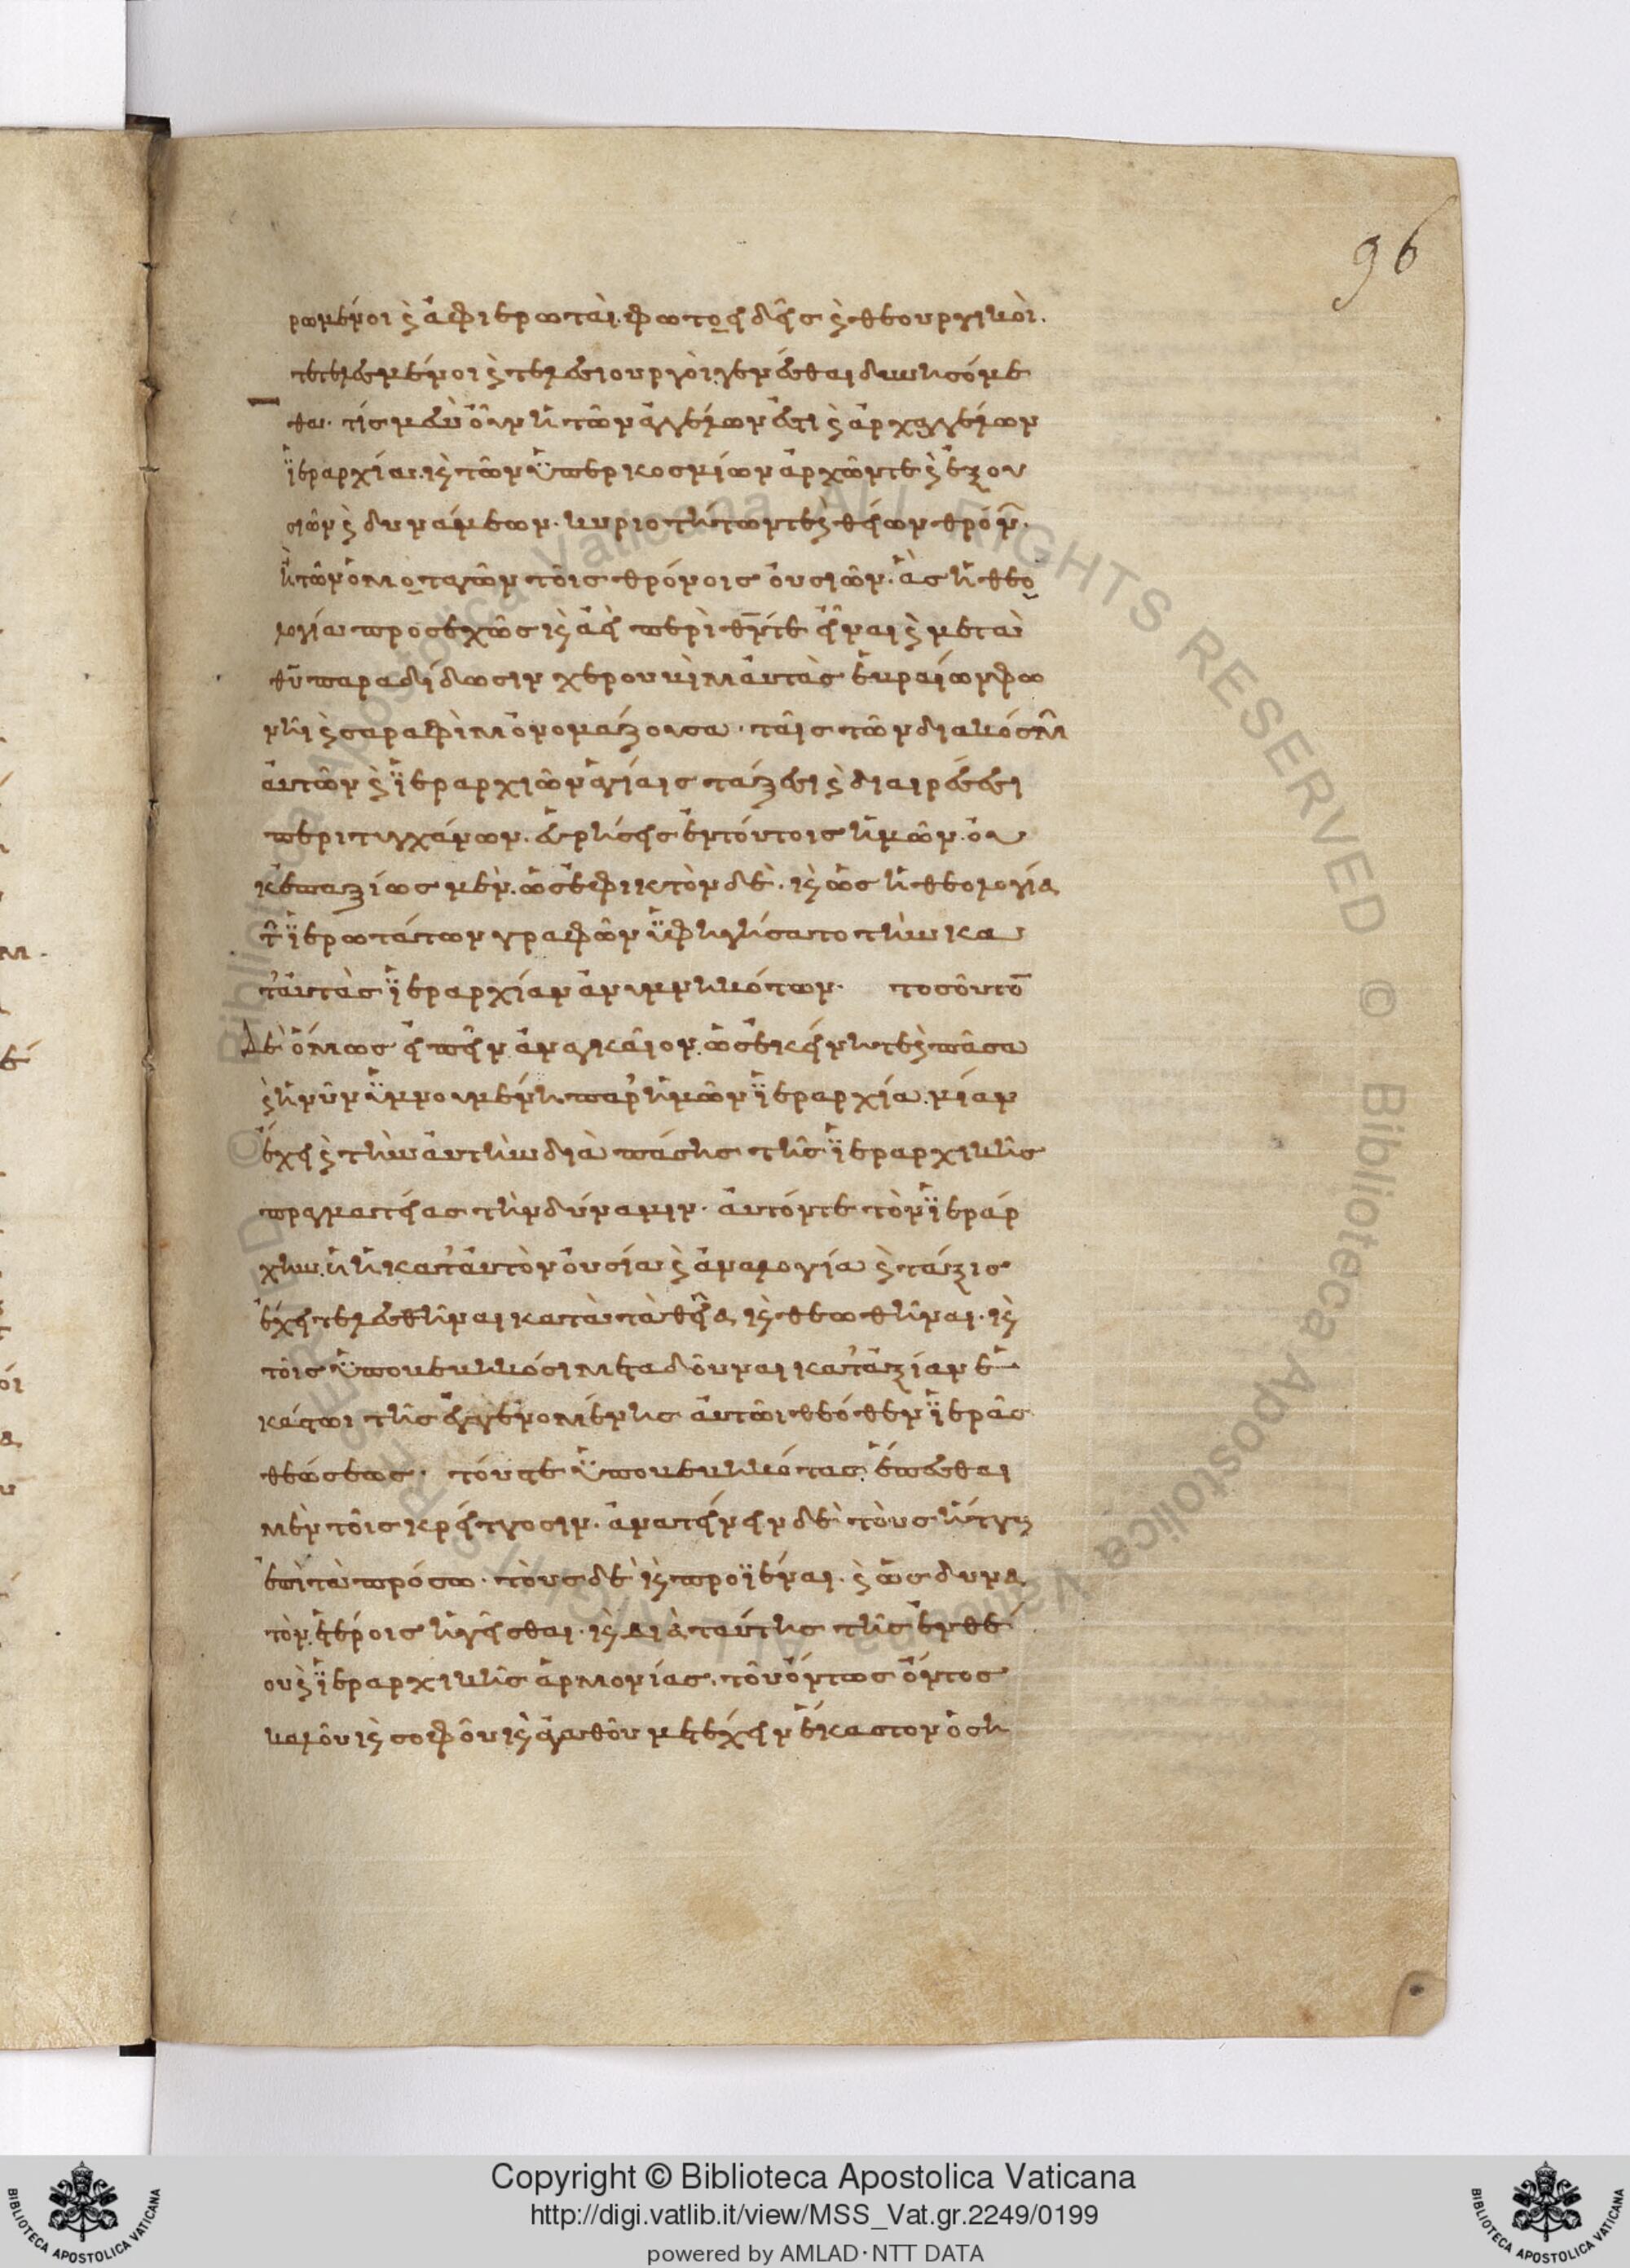 96
ρωμένοι καὶ ἀφιερωταὶ. φωτοειδεῖς καὶ θεουργικοὶ.
τετελεσμένοι καὶ τελεσιουργοὶ γενέσθαι δυνησόμε
θα. τίς μὲν οὖν ἡ τῶν ἀγγέλων ἐστὶ καὶ ἀρχαγγέλων
ἱεραρχία. καὶ τῶν ὑπερκοσμίων ἀρχῶν τε καὶ ἐξου
σιῶν καὶ δυνάμεων. κυριοτήτων τε καὶ θείων θρόνων.
ἢ τῶν ὁμοταγῶν τοῖς θρόνοις οὐσιῶν. ἃς ἡ θεο
λογία προσεχῶς καὶ ἀεὶ περὶ θν τε εἶναι καὶ μετὰ
θυ παραδίδωσιν χερουβὶμ αὐτὰς ἑβραίων φω
νῇ καὶ σαραφὶμ ὀνομάζουσα. ταῖς τῶν διακόσμων
αὐτῶν καὶ ἱεραρχιῶν ἁγίαις τάξεσι καὶ διαιρέσεσι
περιτυγχάνων. εὑρήσεις ἐν τούτοις ἡμῶν. οὐ
κ ἐπαξίως μὲν. ὡς ἐφικτὸν δὲ. καὶ ὡς ἡ θεολογία
τῶν ἱερωτάτων γραφῶν ὑφηγήσατο τὴν κα
τ' αὐτὰς ἱεραρχίαν ἀνυμνηκότων. τοσοῦτον
δὲ ὅμως εἰπεῖν ἀναγκαῖον. ὡς ἐκείνη τε καὶ πᾶσα
καὶ ἡ νῦν ὑμνουμένη παρ' ἡμῶν ἱεραρχία. μίαν
ἔχει καὶ τὴν αὐτὴν διὰ πάσης τῆς ἱεραρχικῆς
πραγματείας τὴν δύναμιν. αὐτόν τε τὸν ἱεράρ
χην. ᾗ ἡ κατ' αὐτὸν οὐσία καὶ ἀναλογία καὶ τάξις
ἔχει τελεσθῆναι κατὰ τὰ θεῖα καὶ θεωθῆναι. καὶ
τοῖς ὑποβεβηκόσι μεταδοῦναι κατ' ἀξίαν ἑ
κάστωι τῆς ἐγγενομένης αὐτῶι θεόθεν ἱερᾶς
θεώσεως. τούς τε ὑποβεβηκότας. ἕπεσθαι
μὲν τοῖς κρείττοσιν. ἀνατείνειν δὲ τοὺς ἥττους
ἐπὶ τὰ πρόσω. τοὺς δὲ καὶ προϊέναι. καὶ ὡς δυνα
τὸν. ἑτέροις ἡγεῖσθαι. καὶ διὰ ταύτης τῆς ἐνθέ
ου καὶ ἱεραρχικῆς ἁρμονίας. τοῦ ὄντως ὄντος
καλοῦ καὶ σοφοῦ καὶ ἀγαθοῦ μετέχειν ἕκαστον ὅση
Copyright © Biblioteca Apostolica Vaticana
http://digi.vatlib.it/view/MSS_Vat.gr.2249/0199
powered by AMLAD·NTT DATA
BIBLIOTECA APOSTOLICA VATICANA
BIBLIOTECA APOSTOLICA VATICANA
© Biblioteca Apostolica Vaticana ALL RIGHTS RESERVED © Biblioteca Apostolica Vaticana ALL RIGHTS RESERVED